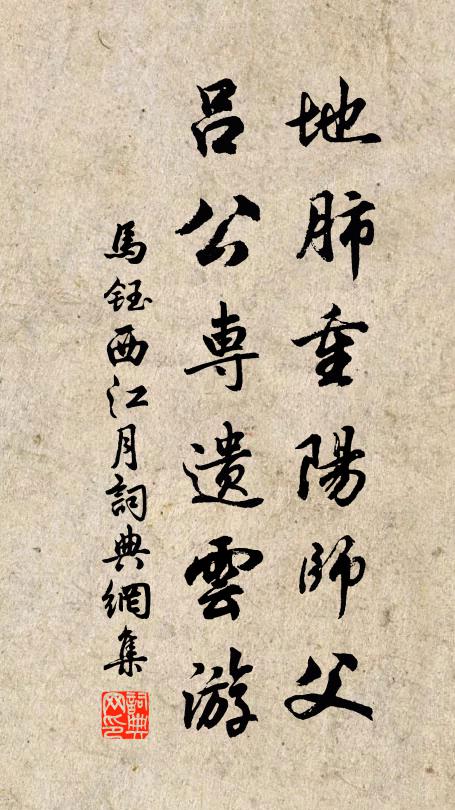 地肺重陽師父
呂公専遺雲游
馬鈺西江月詞典網集
詞典網印